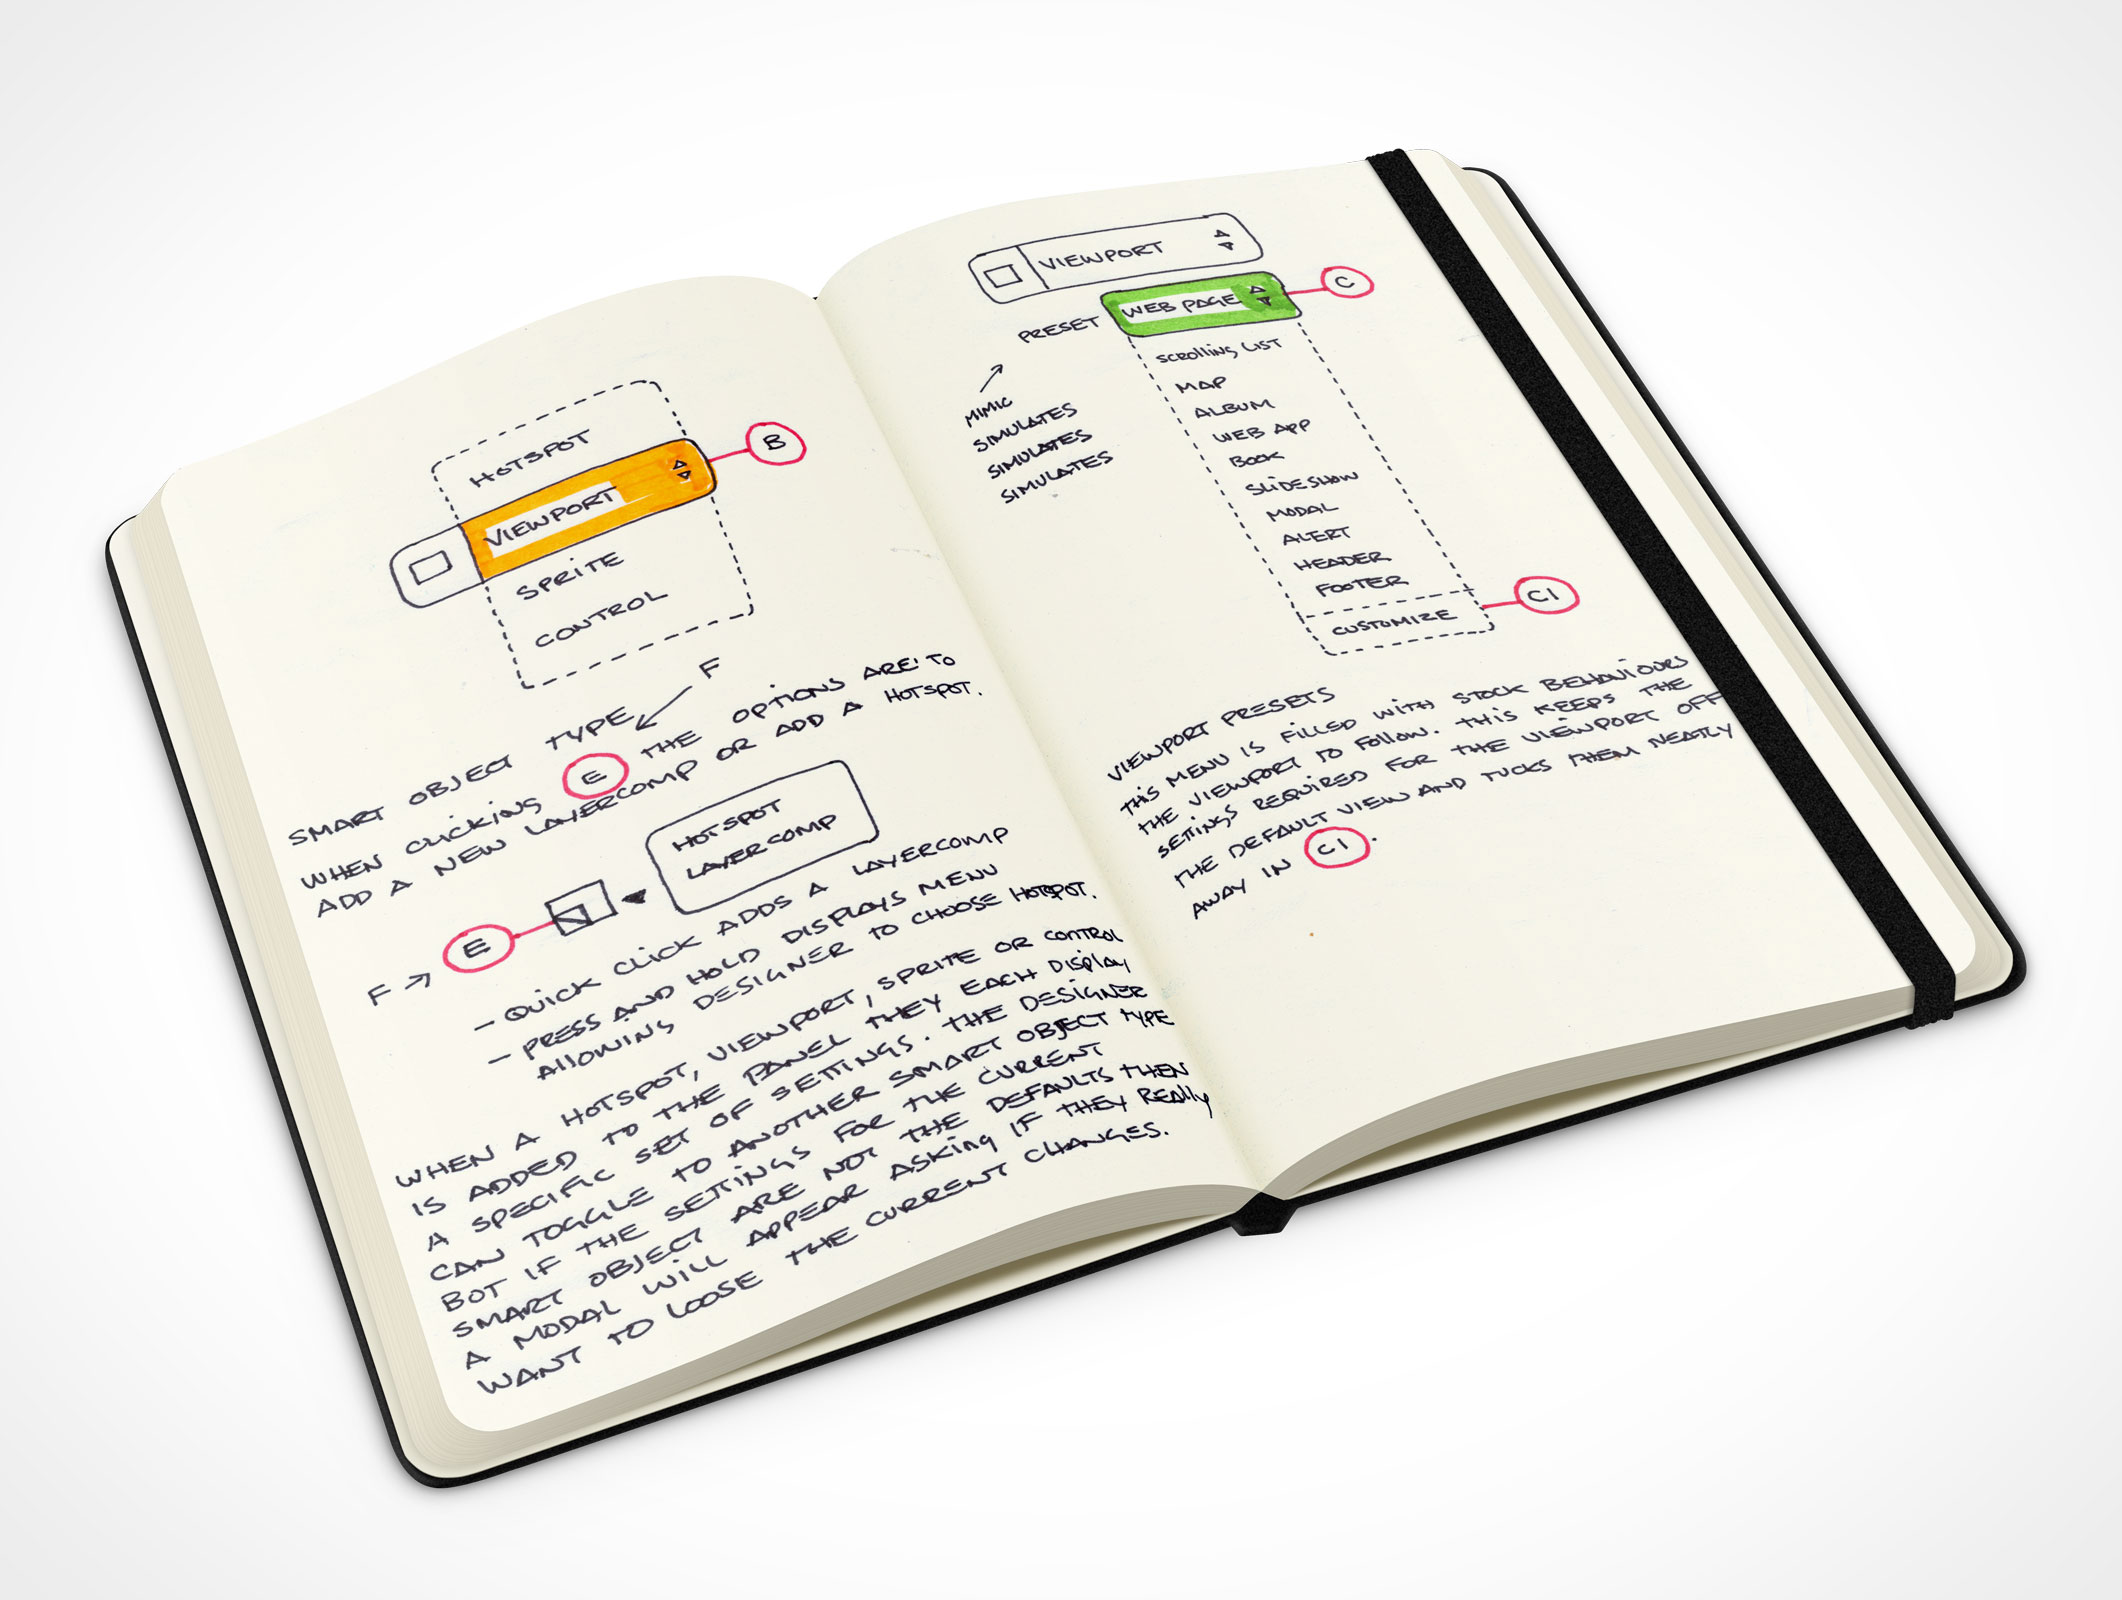 HOTSPOT
VIEWPORT
B
SPRITE
CONTROL
F
SMART OBJECT TYPE
WHEN CLICKING E THE OPTIONS ARE: TO
ADD A NEW LAYERCOMP OR ADD A HOTSPOT.
HOTSPOT
LAYERCOMP
F → E
- QUICK CLICK ADDS A LAYERCOMP
- PRESS AND HOLD DISPLAYS MENU
ALLOWING DESIGNER TO CHOOSE HOTSPOT.
WHEN A HOTSPOT, VIEWPORT, SPRITE OR CONTROL
IS ADDED TO THE PANEL THEY EACH DISPLAY
A SPECIFIC SET OF SETTINGS. THE DESIGNER
CAN TOGGLE TO ANOTHER SMART OBJECT TYPE
BOT IF THE SETTINGS FOR THE CURRENT
SMART OBJECT ARE NOT THE DEFAULTS THEN
A MODAL WILL APPEAR ASKING IF THEY REALLY
WANT TO LOOSE THE CURRENT CHANGES.
VIEWPORT
PRESET WEB PAGE C
MIMIC
SIMULATES
SIMULATES
SIMULATES
SCROLLING LIST
MAP
ALBUM
WEB APP
BOOK
SLIDESHOW
MODAL
ALERT
HEADER
FOOTER
CUSTOMIZE C1
VIEWPORT PRESETS
THIS MENU IS FILLED WITH STOCK BEHAVIOURS
THE VIEWPORT TO FOLLOW. THIS KEEPS THE
SETTINGS REQUIRED FOR THE VIEWPORT OFF
THE DEFAULT VIEW AND TUCKS THEM NEATLY
AWAY IN C1.